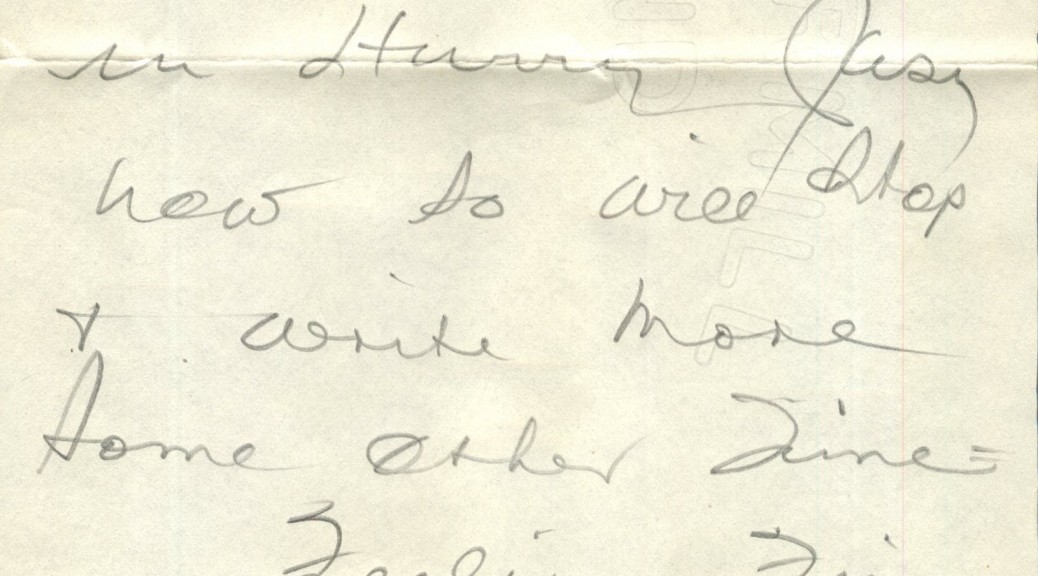 in Hurry (Jasy
now so will Stop
& write More
Some other Time=